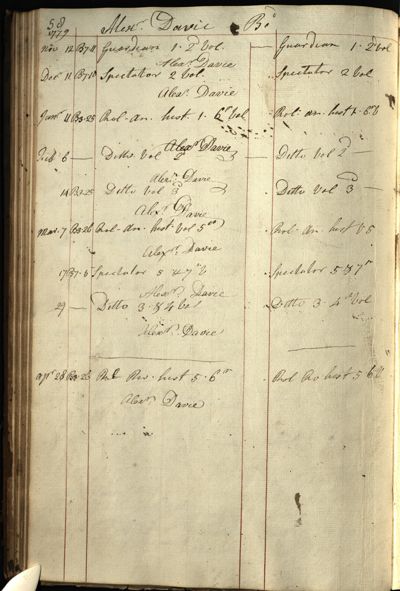 58 Alexr. Davie Br.
1779
Nov 12 B7-11 Guardian 1. 2d Vol. — Guardian 1. 2d Vol
Alexr. Davie
Decr 11 B7-10 Spectator 2 Vol. Spectator 2 Vol
Alexr. Davie
Janr 11 B3-25 Rol. an. hist 1. 6th Vol Rol. an. hist 1. 6th V
Alexr. Davie
Feb 6 — Ditto Vol 2 — Ditto Vol 2 —
Alexr. Davie
14 B3-25 Ditto Vol 3 Ditto Vol 3 —
Alexr. Davie
Mar. 7 B3-26 Rol. an. hist Vol 5th Rol. an. hist V 5
Alexr. Davie
17 B7-8 Spectator 5 & 7th V Spectator 5 & 7th
Alexr. Davie
29 — Ditto 3. & 4 Vol Ditto 3. 4th Vol
Alexr. Davie
Apr 28 B3-26 hist 5. 6th Rol hist 5 6th V
Alexr. Davie